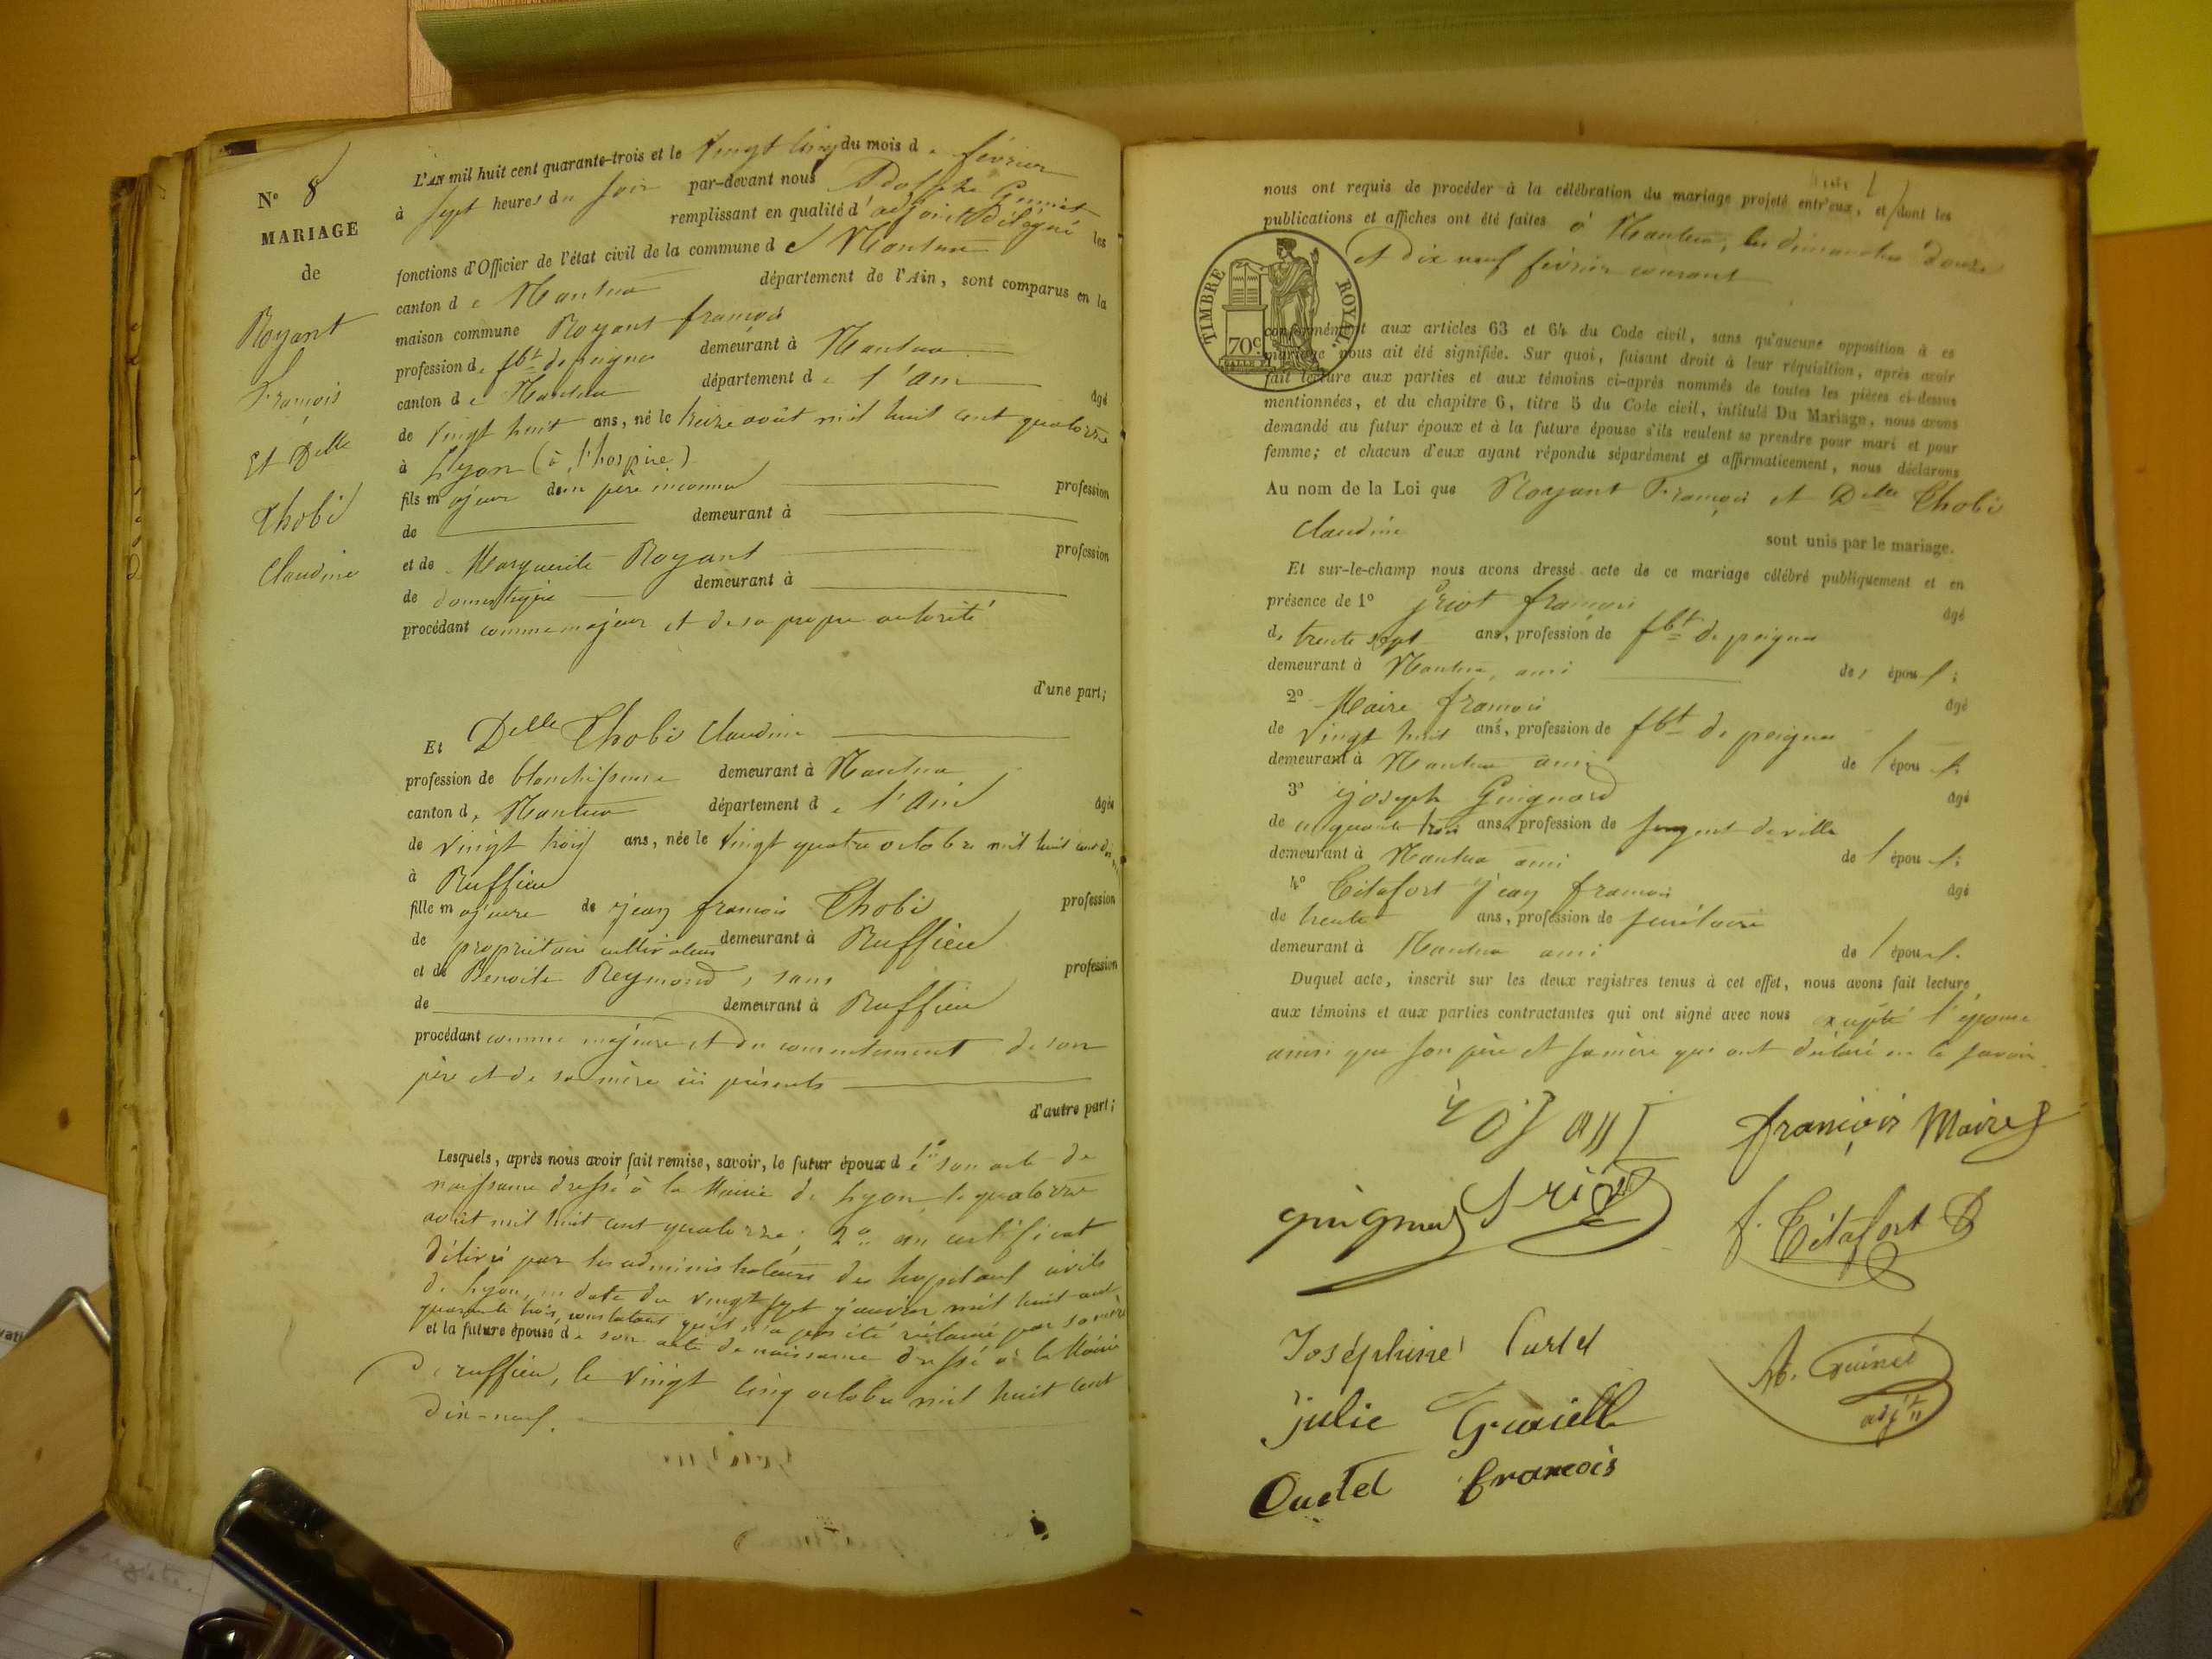 N° 8
MARIAGE
de
Royant
François
Et Delle
Thobi
Claudine
L'AN mil huit cent quarante-trois et le vingt cinq du mois de février
à sept heures du soir par-devant nous Adolphe
remplissant en qualité d'adjoint délégué les
fonctions d'Officier de l'état civil de la commune de Nantua
canton de Nantua département de l'Ain, sont comparus en la
maison commune Royant françois
profession de fbt de peignes demeurant à Nantua
canton de Nantua département de l'Ain âgé
de vingt huit ans, né le treize août mil huit cent quatorze
à Lyon (à l'hospice)
fils majeur d'un père inconnu profession
de demeurant à
et de Marguerite Royant profession
de domestique demeurant à
procédant comme majeur et de sa propre autorité
d'une part;
Et Delle Thobi Claudine
profession de blanchisseuse demeurant à Nantua
canton de Nantua département de l'Ain âgée
de vingt trois ans, née le vingt quatre octobre mil huit cent dix
à Ruffieu
fille majeure de jean françois Thobi profession
de propriétaire cultivateur demeurant à Ruffieu
et de Benoite Reymond, sans profession
de demeurant à Ruffieu
procédant comme majeure et du consentement de son
père et de sa mère ici présents
d'autre part;
Lesquels, après nous avoir fait remise, savoir, le futur époux de 1° son acte de
naissance dressé à la Mairie de Lyon, le quatorze
août mil huit cent quatorze; 2° un certificat
délivré par les administrateurs des hopitaux civils
de Lyon, en date du vingt sept janvier mil huit cent
quarante trois, constatant qu'il n'a pas été réclamé par sa mère
et la future épouse de son acte de naissance dressé à la Mairie
de ruffieu, le vingt cinq octobre mil huit cent
dix-neuf.
nous ont requis de procéder à la célébration du mariage projeté entr'eux, et dont les
publications et affiches ont été faites à Nantua, les dimanches douze
et dix neuf février courant
TIMBRE ROYAL.
70c
conformément aux articles 63 et 64 du Code civil, sans qu'aucune opposition à ce
mariage nous ait été signifiée. Sur quoi, faisant droit à leur réquisition, après avoir
fait lecture aux parties et aux témoins ci-après nommés de toutes les pièces ci-dessus
mentionnées, et du chapitre 6, titre 5 du Code civil, intitulé Du Mariage, nous avons
demandé au futur époux et à la future épouse s'ils veulent se prendre pour mari et pour
femme; et chacun d'eux ayant répondu séparément et affirmativement, nous déclarons
Au nom de la Loi que Royant François et Delle Thobi
Claudine sont unis par le mariage.
Et sur-le-champ nous avons dressé acte de ce mariage célébré publiquement et en
présence de 1° françois âgé
de trente sept ans, profession de fbt de peignes
demeurant à Nantua, ami des époux;
2° Maire françois âgé
de vingt huit ans, profession de fbt de peignes
demeurant à Nantua ami de l'époux;
3° joseph Guignard âgé
de cinquante trois ans, profession de sergent de ville
demeurant à Nantua ami de l'époux;
4° Tétafort jean françois âgé
de trente ans, profession de secrétaire
demeurant à Nantua ami de l'époux.
Duquel acte, inscrit sur les deux registres tenus à cet effet, nous avons fait lecture
aux témoins et aux parties contractantes qui ont signé avec nous excepté l'épouse
ainsi que son père et sa mère qui ont déclaré ne le savoir.
françois Maire
guignard
f. Tétafort
Joséphine Curtet
julie
adjt
françois